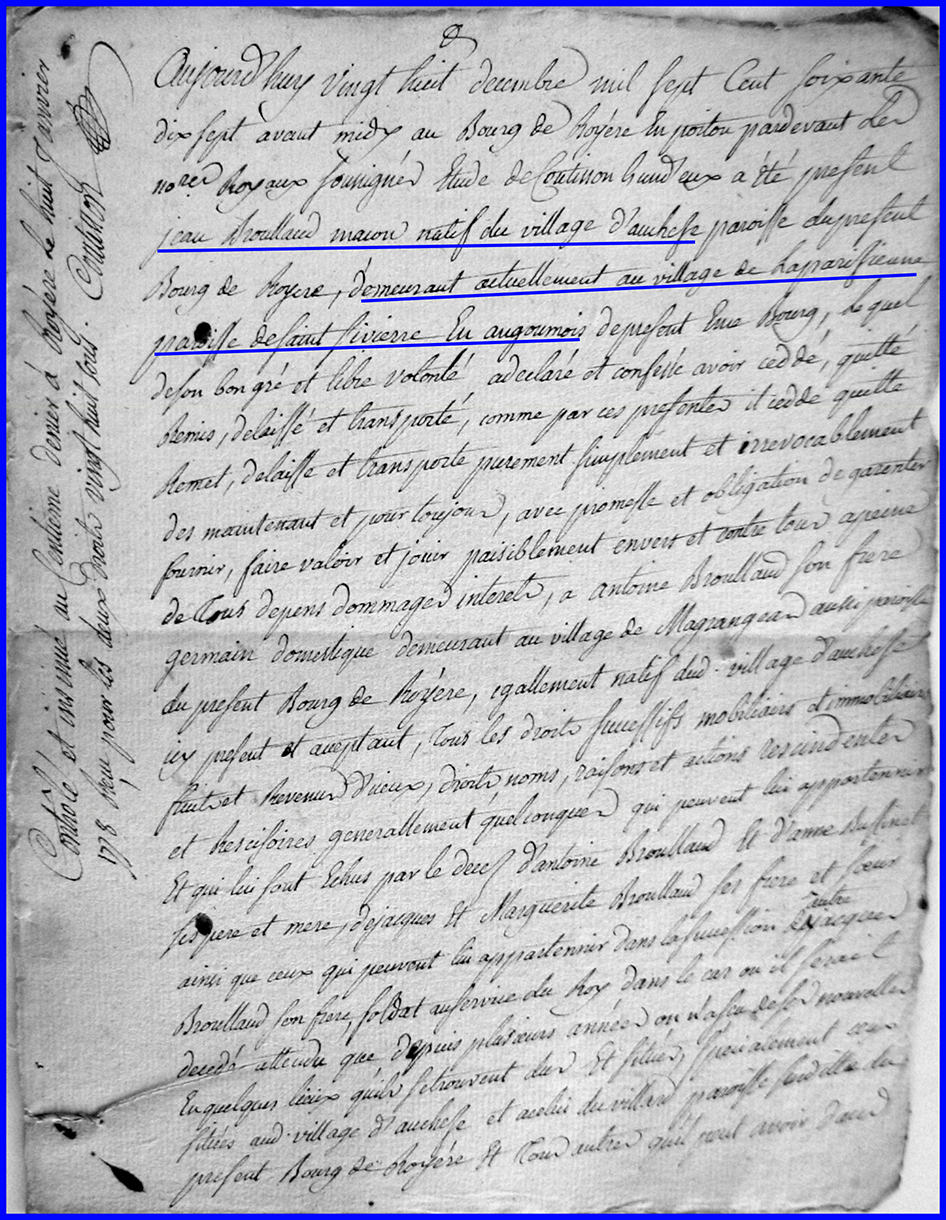 Aujourd'huy vingt huit decembre mil sept Cent soixante
dix sept avant midy au Bourg de Royére En poitou pardevant Les
no.res Royaux soussignés Etude de Coutisson Lund'eux a été present
jean Broullaud macon natif du village d'auchese paroisse du present
Bourg de Royere, demeurant actuellement au village de Laparisienne
paroisse de saint sivierre En augoumois de present En ce Bourg, Lequel
de son bon gré et libre volonté adeclaré et confessé avoir ceddé, quitté
Remis, delaissé et transporté, comme par ces presentes il cedde quitte
Remet, delaisse et transporte purement simplement et irrevocablement
des maintenant et pour toujours, avec promesse et obligation de garentir
fournir, faire valoir et jouir paisiblement envers et contre tous apeine
de Tous depens dommages interets, a antoine Broullaud son frere
germain domestique demeurant au village de Magrangeas aussi paroisse
du present Bourg de Royére, egallement natif dud. village d'auchese
icy present et aceptant, Tous les droits successifs mobiliairs et immobiliairs
fruits et Revenus d'iceux, droits noms, raisons et actions rescindentes
et Rescisoires generallement quelconques qui peuvent lui appartennir
Et qui lui sont Echus par le deces d'antoine Broullaud Et d'anne
ses pere et mere, de jacques Et Marguerite Broullaud ses frere et sœur
ainsi que ceux qui peuvent lui appartennir dans la succession autre jacques
Broullaud son frere, soldat au service du Roy, dans le cas ou il serait
decedé attendu que depuis plusieurs années on n'a sçu de ses nouvelles
En quelques lieux qu'ils se trouvent dus Et situés, specialement ceux
situés aud. village d'auchese et acelui du villard paroisse susditte du
present Bourg de Royére Et Tous autres qu'il peut avoir dans
Controlé et insinué au Centieme denier à Royére Le huit Janvier
1778 Reçu pour les deux droits vingt huit sous. Coutisson